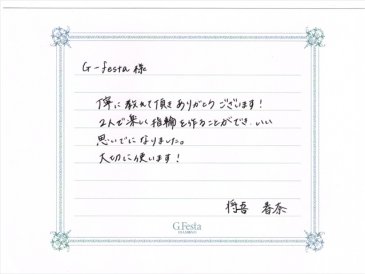 G-festa 様
丁寧に教えて頂きありがとうございます!
2人で楽しく指輪を作ることができ、いい
思いでになりました。
大切に使います!
将吾 春奈
G.Festa